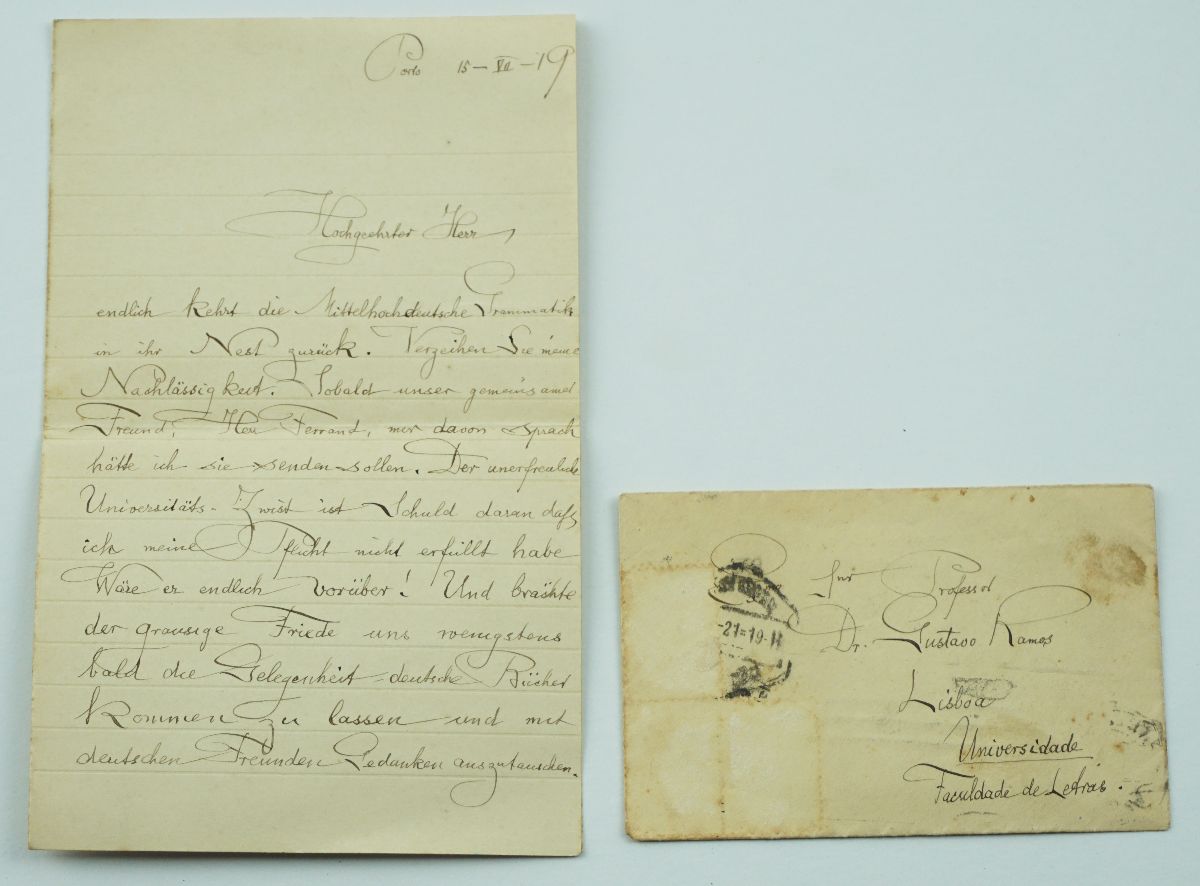 Porto 15-VII-19
Hochgeehrter Herr,
endlich kehrt die Mittelhochdeutsche Grammatik
in ihr Nest zurück. Verzeihen Sie meine
Nachlässigkeit. Sobald unser gemeinsamer
Freund, Herr Ferrand, mir davon sprach
hätte ich sie senden sollen. Der unerfreuliche
Universitäts-Zwist ist Schuld daran daß
ich meine Pflicht nicht erfüllt habe
Wäre er endlich vorüber! Und brächte
der grausige Friede uns wenigstens
bald die Gelegenheit deutsche Bücher
kommen zu lassen und mit
deutschen Freunden Gedanken auszutauschen.
Snr Professor
Dr. Gustavo Ramos
Lisboa
Universidade
Faculdade de Letras.